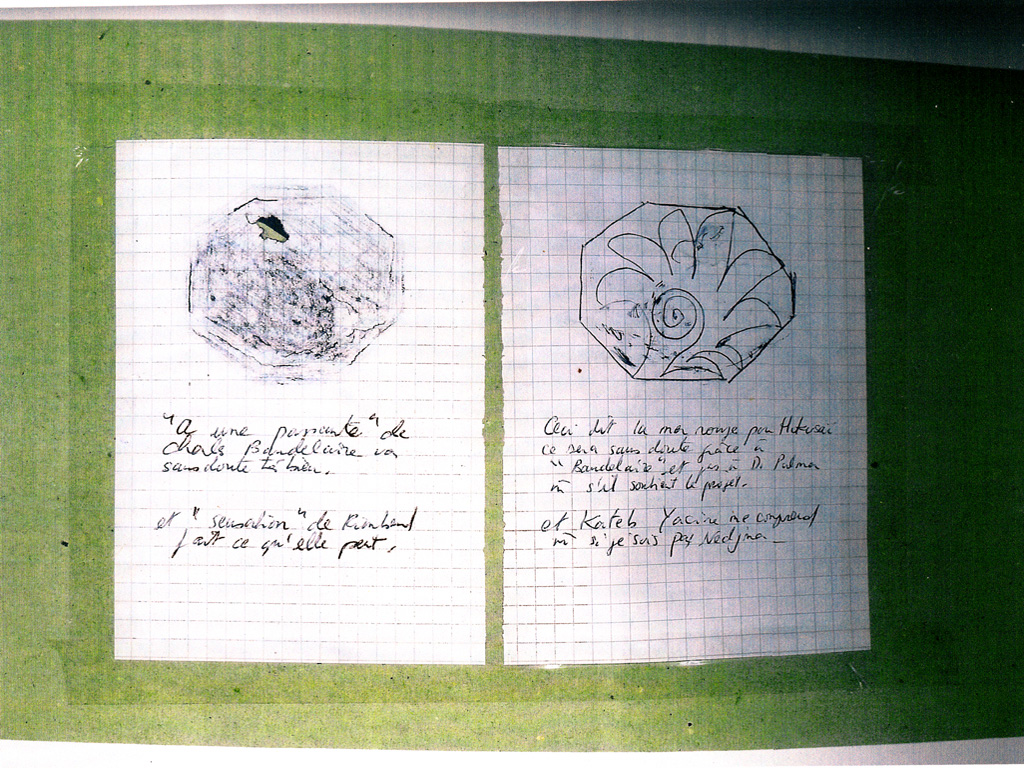 "A une passante" de
charles Baudelaire va
sans doute très bien.
et "sensation" de Rimbaud
fait ce qu'elle peut.
Ceci dit la mer rouge par
ce sera sans doute grâce à
"Baudelaire" et pas à D. Palma
m s'il soutient le projet.
et Kateb Yacine me comprend
m si je suis pas Nedjma_